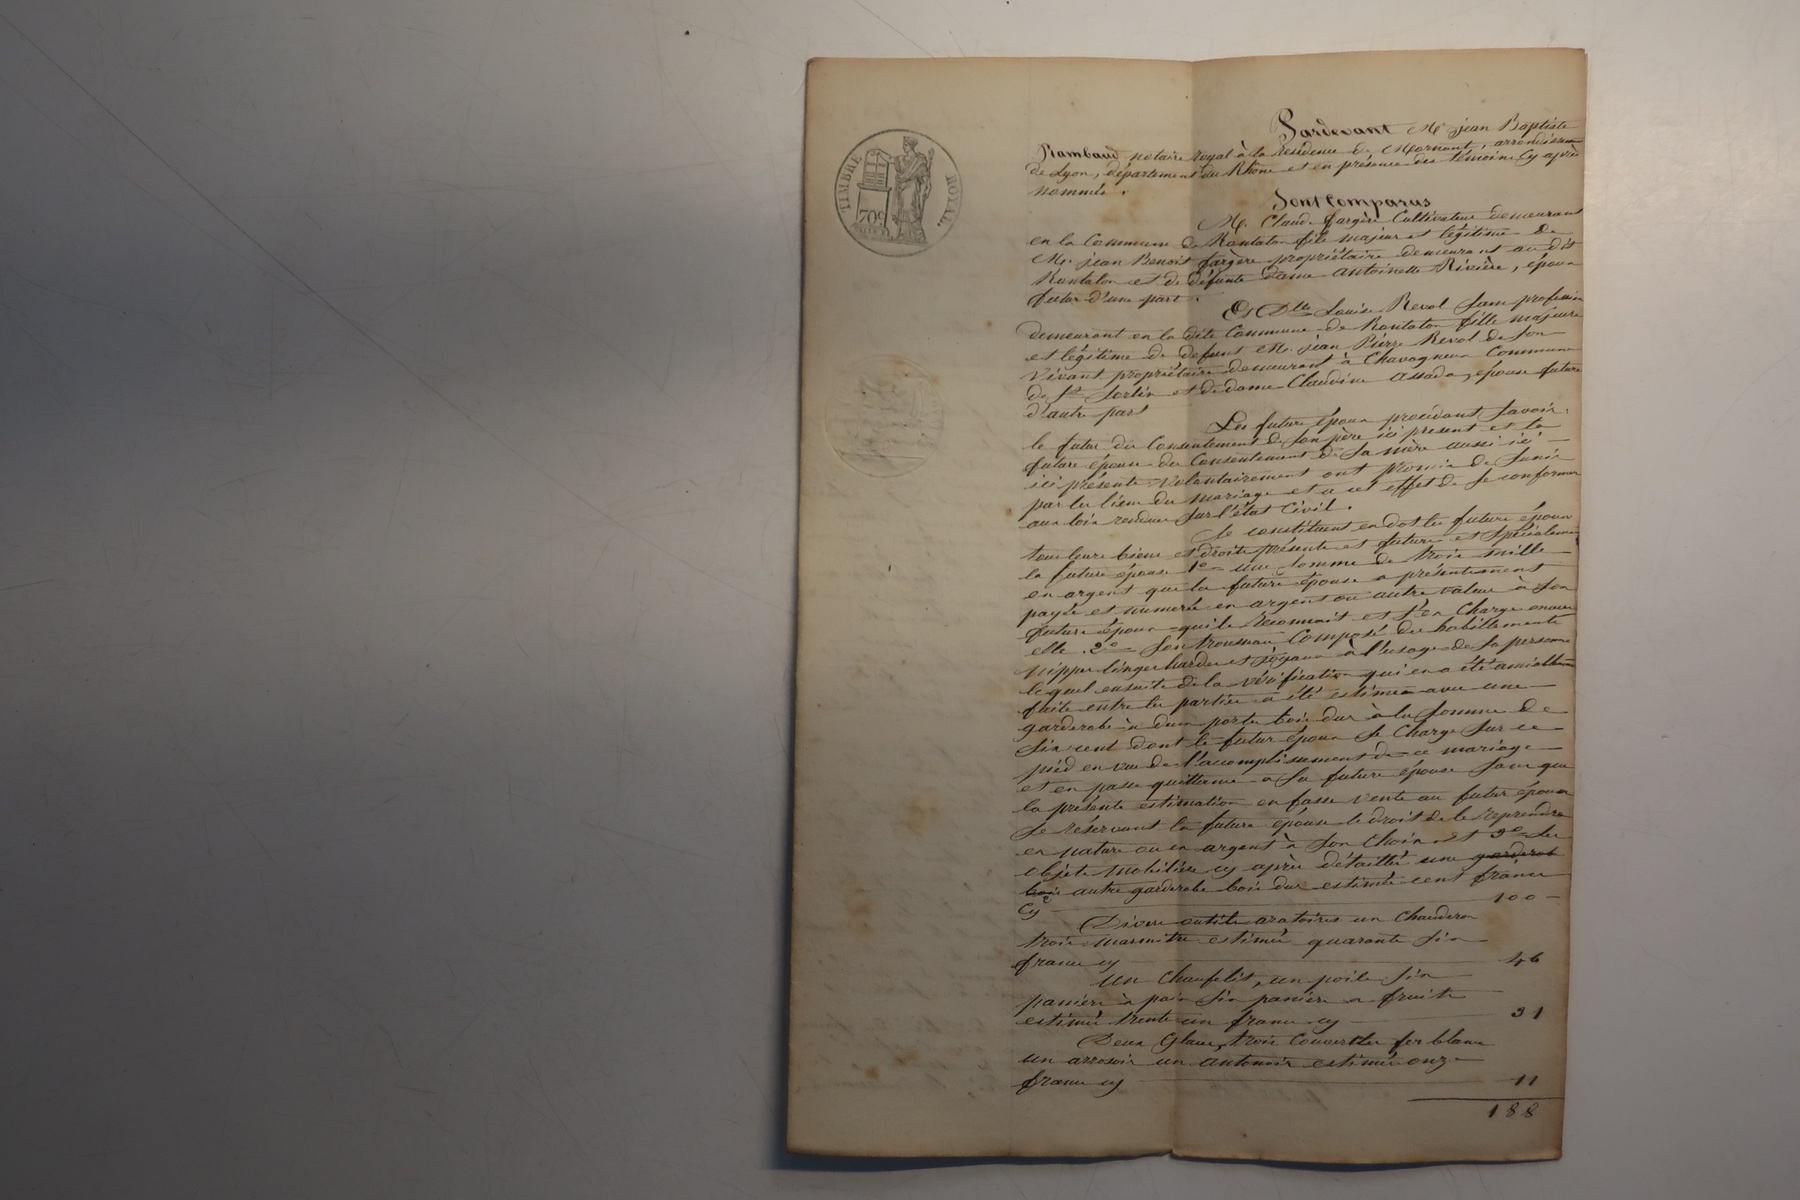 TIMBRE ROYAL
70c
Pardevant Me jean Baptiste
Rambaud notaire royal à la résidence de Mornant, arrondissem
de Lyon, département du Rhône et en présence des témoins cy après
nommés.
Sont Comparus
Mr. Claude fargère Cultivateur demeurant
en la Commune de Rontalon fils majeur et légitime de
Mr. jean Benoit fargere propriétaire demeurant au dit
Rontalon et de défunte dame antoinette Rivière, époux
futur d'une part.
Et Dlle Louise Revol Sans profession
demeurant en la dite Commune de Rontalon fille majeure
et légitime de defunt Mr. jean Pierre Revol de Son
vivant propriétaire demeurant à Chavagneux Commune
de St Sorlin et de dame Claudine assada, épouse future
d'autre part
Les futurs époux procédant Savoir:
le futur du Consentement de Son père ici présent et la
future épouse du Consentement de Sa mère aussi ici
ici présente, volontairement ont promis de S'unir
par les liens du mariage et a cet effet de Se conformer
aux lois rendues Sur l'état Civil.
Se constituent en dot les futurs époux
tous leurs biens et droits présents et futurs et Spécialement
la future épouse 1o une Somme de trois mille
en argent que la future épouse a présentement
payée et numérée en argent ou autre valeur à Son
future époux qui le Reconnait et S'en Charge envers
elle. 2o Son trousseau Composé des habillements
nippes linges hardes et joyaux à l'usage de Sa personne
lequel ensuite de la vérification qui en a été amiablem
faite entre les parties a été estimés avec une
garderobe à deux portes bois dur à la Somme de
Six cent dont le futur époux Se Charge Sur ce
pied en vue de l'accomplissement de ce mariage
et en passe quittance a Sa future épouse Sans que
la présente estimation en fasse vente au futur époux
Se réservant la future épouse le droit de le reprendre
en nature ou en argent à Son Choix et 3o les
objets mobiliers cy après détaillés une garderob
bois autre garderobe bois dur estimée cent francs
Cy 100
Divers outils aratoires un Chaudron
trois marmites estimés quarante Six
francs cy 46
Un Chaufelit, un poile Six
paniers à pain Six paniers a fruits
estimés trente un francs cy 31
Deux Glaces, trois Couvercles fer blanc
un arrosoir un antonoir estimés onze
francs cy 11
188